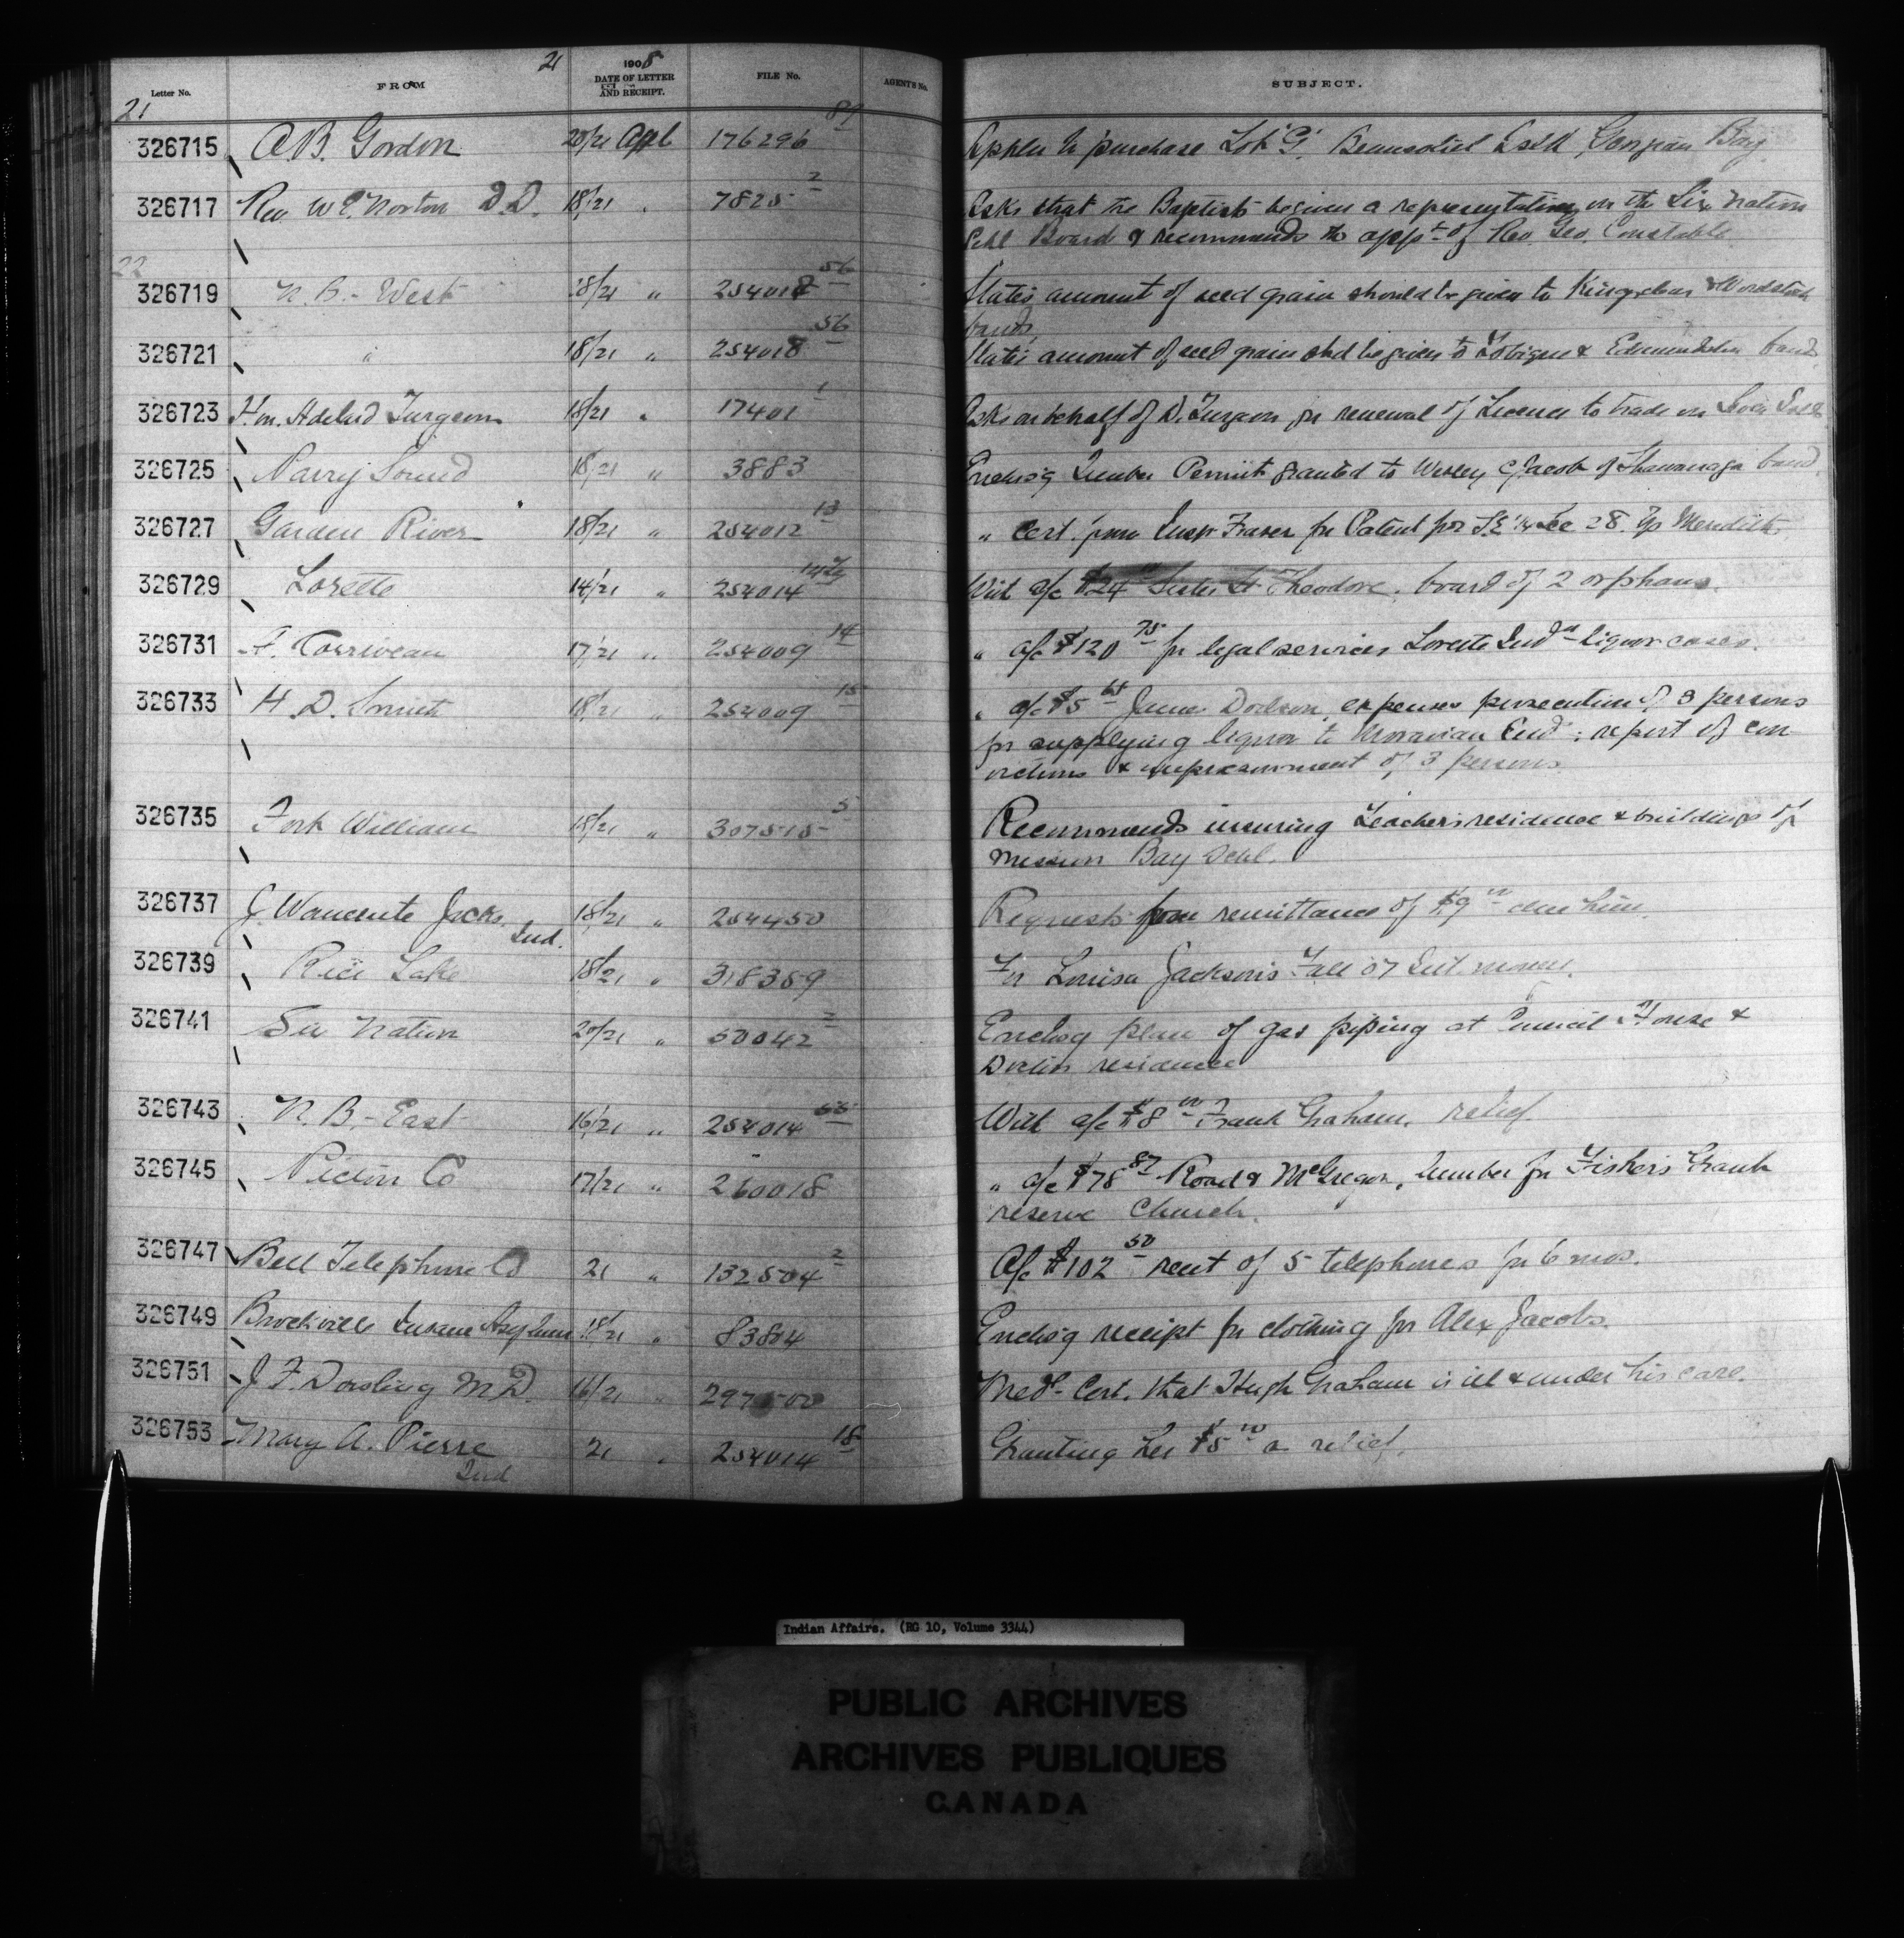 21 1908
Letter No. FROM DATE OF LETTER AND RECEIPT. FILE No. AGENT'S No. SUBJECT.
21
326715 A.B. Gordon 20/21 Apl 176296 89 Applen to purchase Lot "G" Beausoliel Isld, Georgian Bay
326717 Rev W.E. Norton D.D. 18/21 " 7825 2 Asks that the Baptists be given a representative on the Six Nation
Schl Board & recommends the appt of Rev. Geo. Constable
22
326719 N.B.- West 18/21 " 254018 56 States amount of seed grain should be given to Kingsclear & Woodstock
bands
326721 " 18/21 " 254018 56 States amount of seed grain shd be given to Tobique & Edmundston bands
326723 Hon. Adelard Turgeon 18/21 " 17401 1 Asks on behalf of D. Turgeon for renewal of License to trade on
326725 Parry Sound 18/21 " 3883 Enclos'g Timber Permit granted to Wesley Jacob of Shawanaga band.
326727 Garden River 18/21 " 254012 13 " Cert. from Insp. Fraser for Patent for S.E ¼ Sec 28. Tp Meredith
326729 Lorette 14/21 " 254014 With a/c $24 Sister St Theodore, board of 2 orphans.
326731 A. Corriveau 17/21 " 254009 14 " a/c $120 75 for legal services Lorette Indn liquor cases.
326733 H.D. Smith 18/21 " 254009 15 " a/c $5 James Dodson, expenses prosecution of 3 persons
for supplying liquor to Moravian Inds: report of con
victions & imprisonment of 3 persons
326735 Fort William 18/21 " 307515 5 Recommends insuring Teacher's residence & buildings of
Mission Bay Schl.
326737 J. Wawceute Jacks. 18/21 " 254450 Requests from remittance of $9 00 due him.
Ind.
326739 Rice Lake 18/21 " 318359 For Louisa Jackson's Fall 07 Int. money.
326741 Six Nation 20/21 " 50042 2 Enclos'g plan of gas piping at Council House &
Doctor's residence
326743 N.B.- East 16/21 " 254014 55 With a/c $8 00 Frank Graham, relief.
326745 Pictou Co 17/21 " 260018 " a/c $78 87 Road & McGregor, lumber for Fisher's Grant
reserve Church.
326747 Bell Telephone Co 21 " 132504 2 A/c $102 50 rent of 5 telephones for 6 mos.
326749 Brockville Insane Asylum 18/21 " 83804 Enclos'g receipt for clothing for Alex Jacobs.
326751 J.F. Dowsling M.D. 16/21 " 297500 Medl Cert. that Hugh Graham is ill & under his care.
326753 Mary A. Pierre 21 " 254014 18 Granting her $5 00 a relief.
Ind
Indian Affairs. (RG 10, Volume 3344)
PUBLIC ARCHIVES
ARCHIVES PUBLIQUES
CANADA